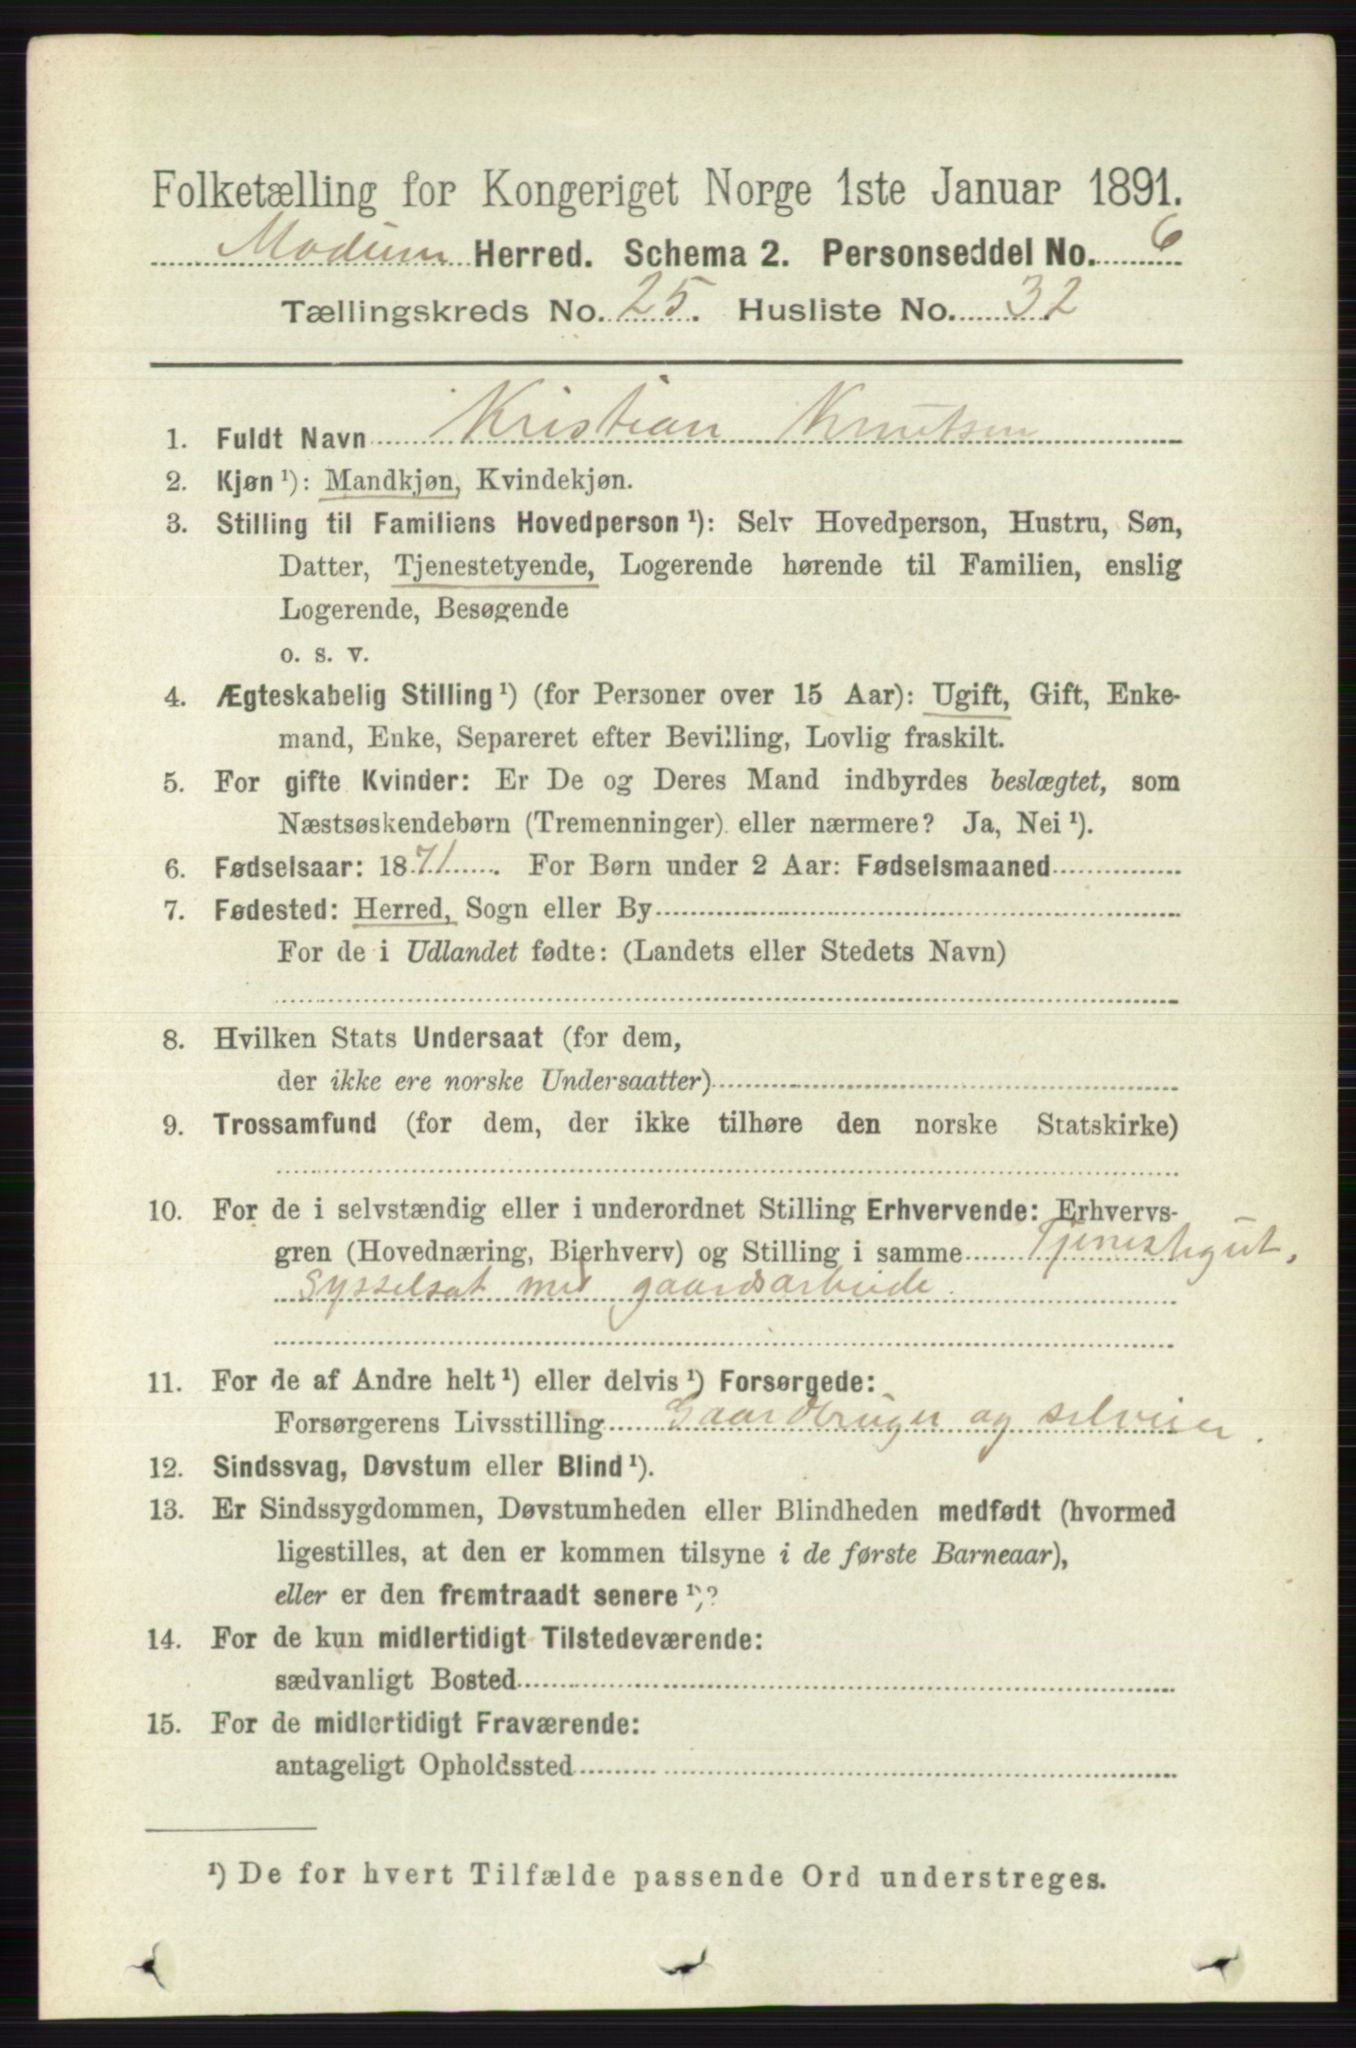 Folketælling for Kongeriget Norge 1ste Januar 1891.
Modum Herred. Schema 2. Personseddel No. 6
Tællingskreds No. 25. Husliste No. 32
1. Fuldt Navn Kristian Knutsen
2. Kjøn ¹): Mandkjøn, Kvindekjøn.
3. Stilling til Familiens Hovedperson ¹): Selv Hovedperson, Hustru, Søn,
Datter, Tjenestetyende, Logerende hørende til Familien, enslig
Logerende, Besøgende
o. s. v.
4. Ægteskabelig Stilling ¹) (for Personer over 15 Aar): Ugift, Gift, Enke-
mand, Enke, Separeret efter Bevilling, Lovlig fraskilt.
5. For gifte Kvinder: Er De og Deres Mand indbyrdes beslægtet, som
Næstsøskendebørn (Tremenninger) eller nærmere? Ja, Nei ¹).
6. Fødselsaar: 1871. For Børn under 2 Aar: Fødselsmaaned
7. Fødested: Herred, Sogn eller By
For de i Udlandet fødte: (Landets eller Stedets Navn)
8. Hvilken Stats Undersaat (for dem,
der ikke ere norske Undersaatter)
9. Trossamfund (for dem, der ikke tilhøre den norske Statskirke)
10. For de i selvstændig eller i underordnet Stilling Erhvervende: Erhvervs-
gren (Hovednæring, Bierhverv) og Stilling i samme Tjenestegut,
Sysselsat med gaardsarbeide.
11. For de af Andre helt ¹) eller delvis ¹) Forsørgede:
Forsørgerens Livsstilling Gaardbruger og selveier.
12. Sindssvag, Døvstum eller Blind ¹).
13. Er Sindssygdommen, Døvstumheden eller Blindheden medfødt (hvormed
ligestilles, at den er kommen tilsyne i de første Barneaar),
eller er den fremtraadt senere ¹)?
14. For de kun midlertidigt Tilstedeværende:
sædvanligt Bosted
15. For de midlertidigt Fraværende:
antageligt Opholdssted
¹) De for hvert Tilfælde passende Ord understreges.